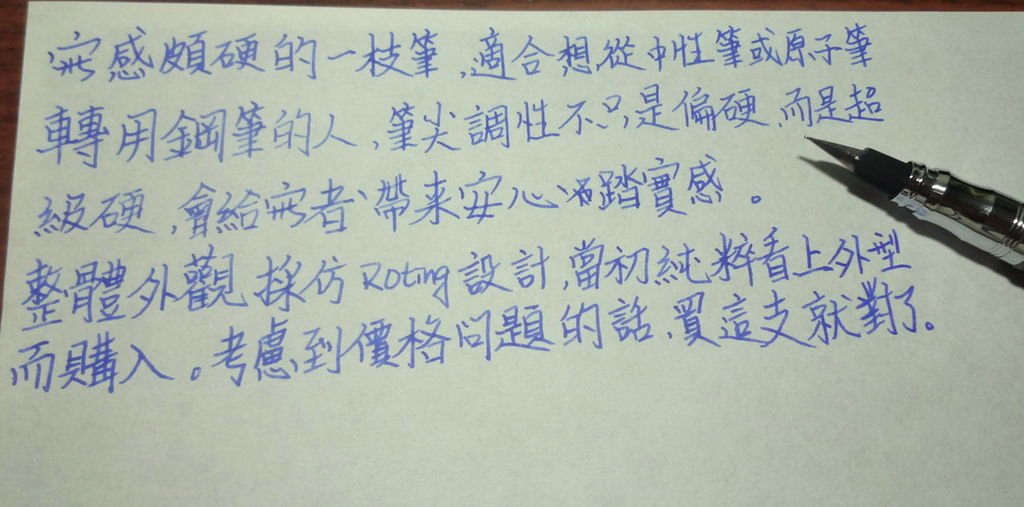 写感頗硬的一枝筆,適合想從中性筆或原子筆
轉用鋼筆的人,筆尖調性不只是偏硬,而是超
級硬,會給写者帶来安心踏實感。
整體外觀採仿Roting設計,當初純粹看上外型
而購入。考慮到價格问題的話,買這支就對了。